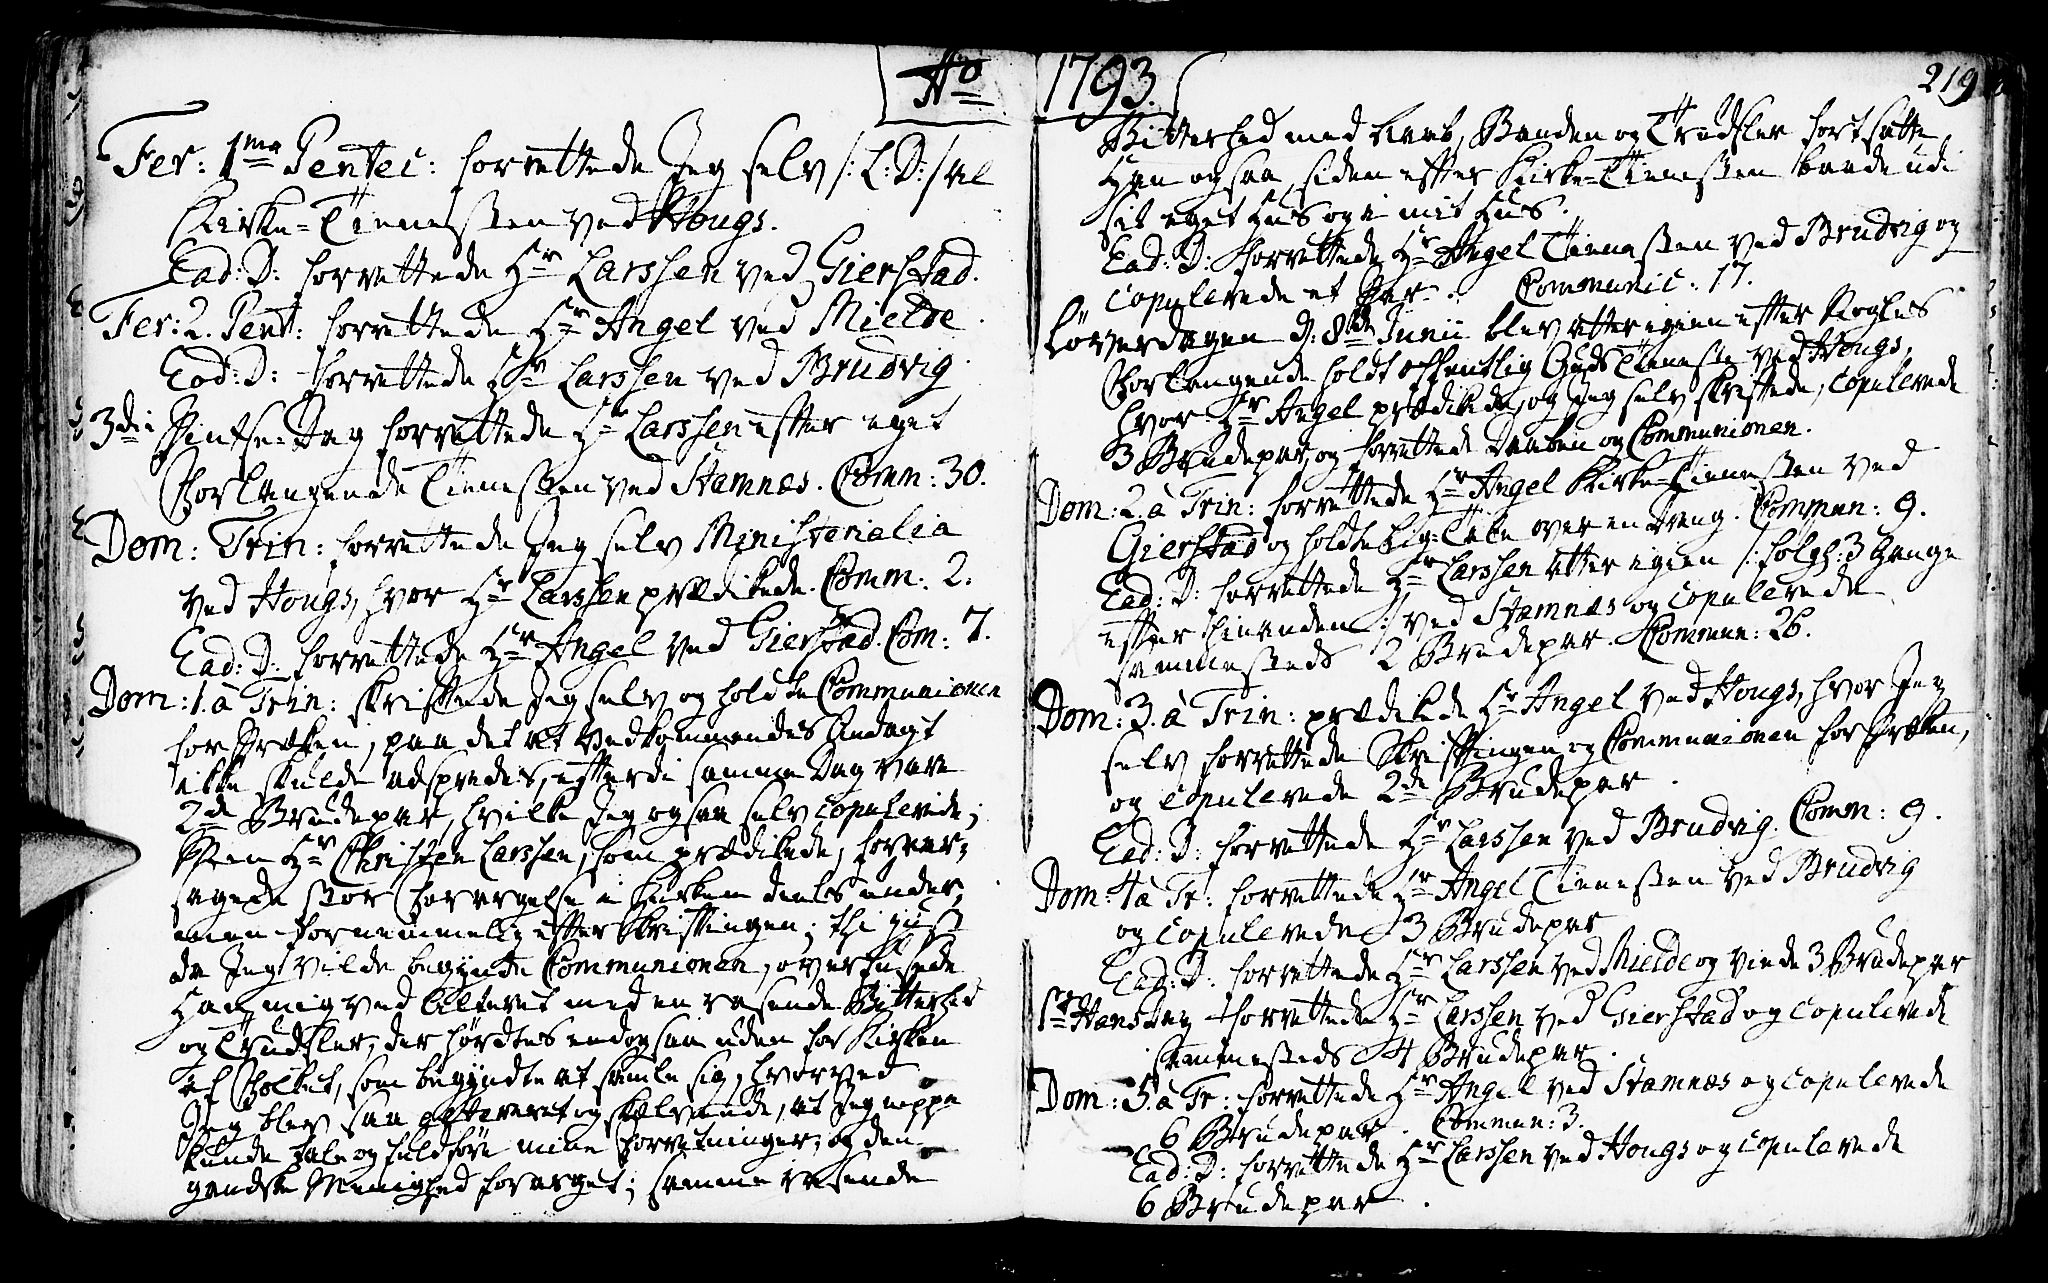 Ao
Fer: 1ma Pentec: forrettede Jeg selv /: L: D: / al
Kirke=Tienesten ved Hougs.
Ead: D: forrettede Hr Larssen ved Gierstad.
Fer: 2. Pent: forrettede Hr Angel ved Mielde.
Ead: D: forrettede Hr Larssen ved Brudvig.
3die Pintse=Dag forrettede Hr Larssen efter eget
Forlangende Tienesten ved Stamnæs. Comm: 30.
Dom: Trin: forrettede Jeg selv Ministerialia
ved Hougs, hvor Hr Larssen prædikede. Comm: 2.
Ead: D: forrettede Hr Angel ved Gierstad. Com: 7.
Dom: 1. à Trin: skriftede Jeg selv og holdte Communionen
for Præken, paa det at Vedkommendes Andagt
ikke skulde adspredes, efterdi samme Dag vare
2de Brudepar, hvilke Jeg ogsaa selv copulerede;
Men Hr Christen Larssen, som prædikede, foraar-
sagede stor Forargelse i Kirken deels under,
men fornemmelig efter Skriftingen; thi just
da Jeg vilde begynde Communionen, overfusede
Han mig ved Alteret med en rasende Bitterhed
og Trudsler, der hørdtes endogsaa uden for Kirken
af Folket, som begyndte at samle sig, hvorved
Jeg blev saa altereret og skelvende, at Jeg neppe
kunde tale og fuldføre mine Forretninger, og den
gandske Menighed forarget; samme rasende
1793.
219
Bitterhed med Raab, Banden og Trudsler fortsatte
Han ogsaa siden efter Kirke=Tienesten baade udi
sit eget Huus og i mit Huus.
Ead: D: forrettede Hr Angel Tienesten ved Brudvig og
copulerede et Par. Communic: 17.
Løverdagen d: 8de Junii blev atter igien efter Nogles
Forlangende holdt offentlig Guds Tieneste ved Hougs,
hvor Hr Angel prædikede, og Jeg selv skriftede, copulerede
3 Brudepar, og forrettede Daaben og Communionen.
Dom: 2. à Trin: forrettede Hr Angel Kirke=Tienesten ved
Gierstad og holdte Lig=Tale over en Dreng. Commun: 9.
Ead: D: forrettede Hr Larssen atter igien /: følgl: 3 Gange
efter hinanden :/ ved Stamnæs og copulerede
sammesteds 2 Brudepar. Commun: 26.
Dom: 3. à Trin: prædikede Hr Angel ved Hougs, hvor Jeg
selv forrettede Skriftingen og Communionen for Præken,
og copulerede 2de Brudepar.
Ead: D: forrettede Hr Larssen ved Brudvig. Comm: 9.
Dom: 4 à Tr: forrettede Hr Angel Tienesten ved Brudvig
og copulerede 3 Brudepar
Ead: D: forrettede Hr Larssen ved Mielde og viede 3 Brudepar
St Hansdag forrettede Hr Larssen ved Gierstad og copulerede
sammesteds 4 Brudepar.
Dom: 5. à Tr: forrettede Hr Angel ved Stamnæs og copulerede
6 Brudepar. Commun: 3.
Ead: D: forrettede Hr Larssen ved Hougs og copulerede
6 Brudepar.